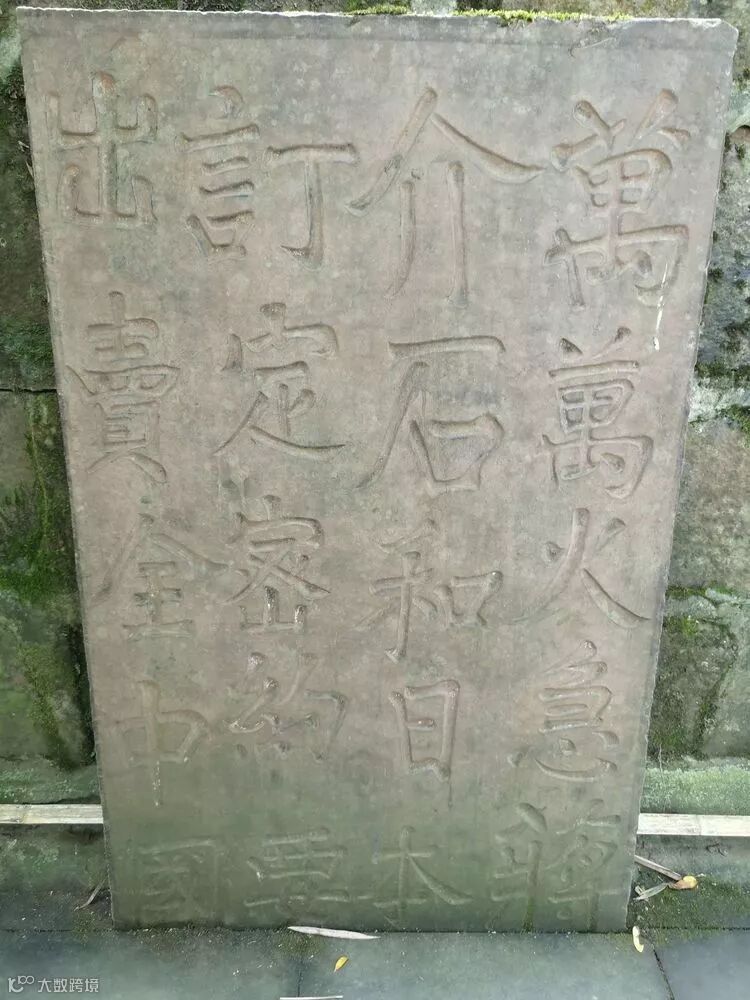 萬萬火急蔣
介石和日本
訂定密約要
出賣全中國
大数跨境